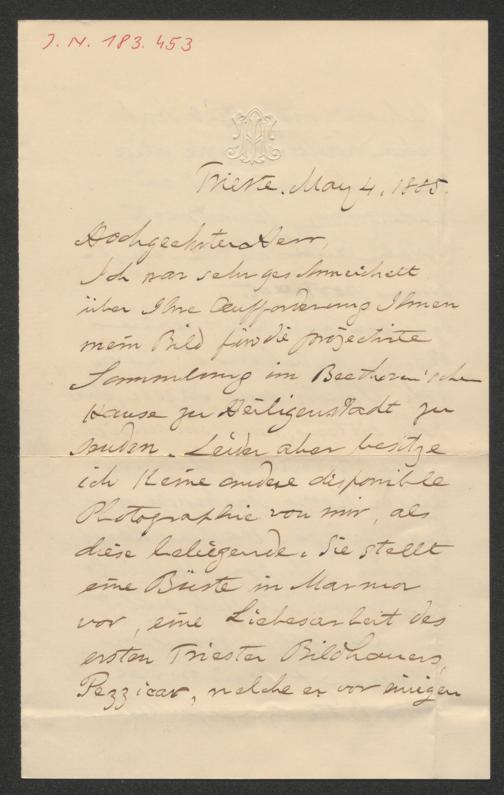 J. N. 183.453
Trieste. May 4. 1885.
Hochgeehrter Herr,
Ich war sehr geschmeichelt
über Ihre Aufforderung Ihnen
mein Bild für die projectirte
Sammlung im Beethoven'schen
Hause zu Heiligenstadt zu
senden. Leider aber besitze
ich keine andere disponible
Photographie von mir, als
diese beliegende. Sie stellt
eine Büste in Marmor
vor, eine Liebesarbeit des
ersten Triester Bildhauers,
Pezzicar, welche er vor einigen